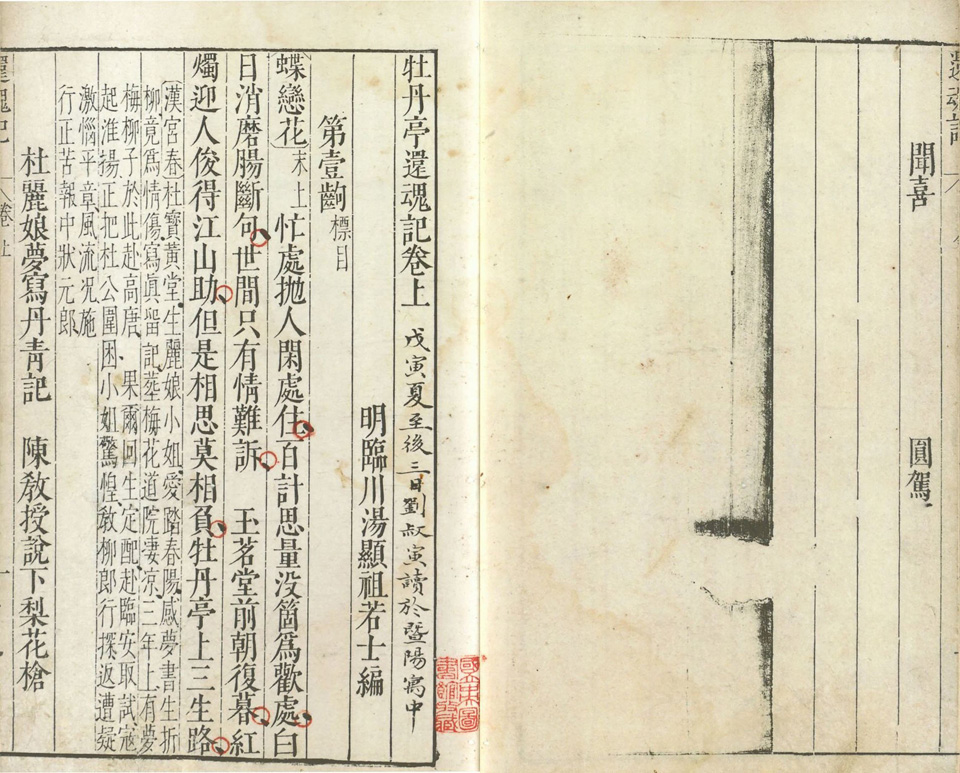 還魂記
聞喜 圓駕
牡丹亭還魂記卷上 戊寅夏至後三日劉叔寅讀於暨陽寓中
明臨川湯顯祖若士編
第壹齣 標目
蝶戀花 末上 忙處抛人閑處住百計思量没箇爲歡處白
日消磨腸斷句世間只有情難訴 玉茗堂前朝復暮紅
燭迎人俊得江山助但是相思莫相負牡丹亭上三生路
漢宮春 杜寶黃堂生麗娘小姐愛踏春陽感夢書生折
柳竟爲情傷寫眞留記葬梅花道院淒凉三年上有夢
梅柳子於此赴高唐果爾回生定配赴臨安取試寇
起淮揚正把杜公圍困小姐驚惶教柳郎行探返遭疑
激惱平章風流况施
行正苦報中狀元郎
杜麗娘夢寫丹青記 陳教授說下梨花槍
還魂記 卷上